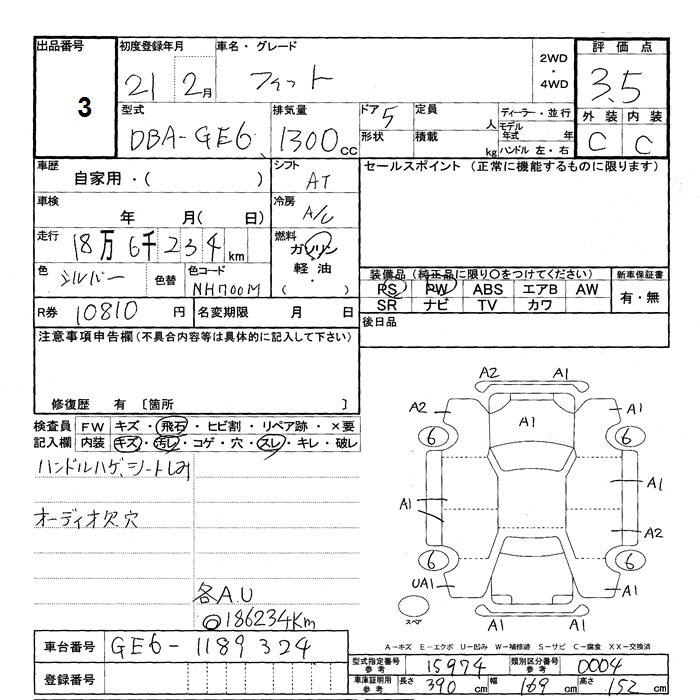 出品番号 初度登録年月 車名・グレード 2WD・4WD 評価点
3 21 2月 フィット 3.5
型式 排気量 ドア 定員 ディーラー・並行 外装 内装
DBA-GE6 1300cc 5 人 モデル年式 年 C C
形状 積載 kg ハンドル 左・右
車歴 シフト セールスポイント (正常に機能するものに限ります)
自家用・( ) AT
車検 冷房
年 月( 日) A/C
走行 燃料
18万6千234km ガソリン
軽油
・( )
色 色替 色コード
シルバー NH700M
装備品 (純正品に限り〇をつけてください) 新車保証書
PS PW ABS エアB AW 有・無
SR ナビ TV カワ
R券 10810円 名変期限 月 日 後日品
注意事項申告欄(不具合内容等は具体的に記入して下さい)
修復歴 有 〔箇所 〕
検査員 FW キズ・飛石・ヒビ割・リペア跡・×要
記入欄 内装 キズ・汚レ・コゲ・穴・スレ・キレ・破レ
ハンドルハゲ、シートしみ
オーディオ欠穴
各A.U
◎186234Km
A2 A1
A2 A1 A1
6 6
A1 A1
A2
6 6
UA1 A1
A1 A1
スペア
A-キズ E-エクボ U-凹み W-補修跡 S-サビ C-腐食 XX-交換済
車台番号 GE6-1189324
登録番号
型式指定番号 参考 15974 類別区分番号 参考 0004
車庫証明用 参考 長さ 390cm 幅 169cm 高さ 152cm